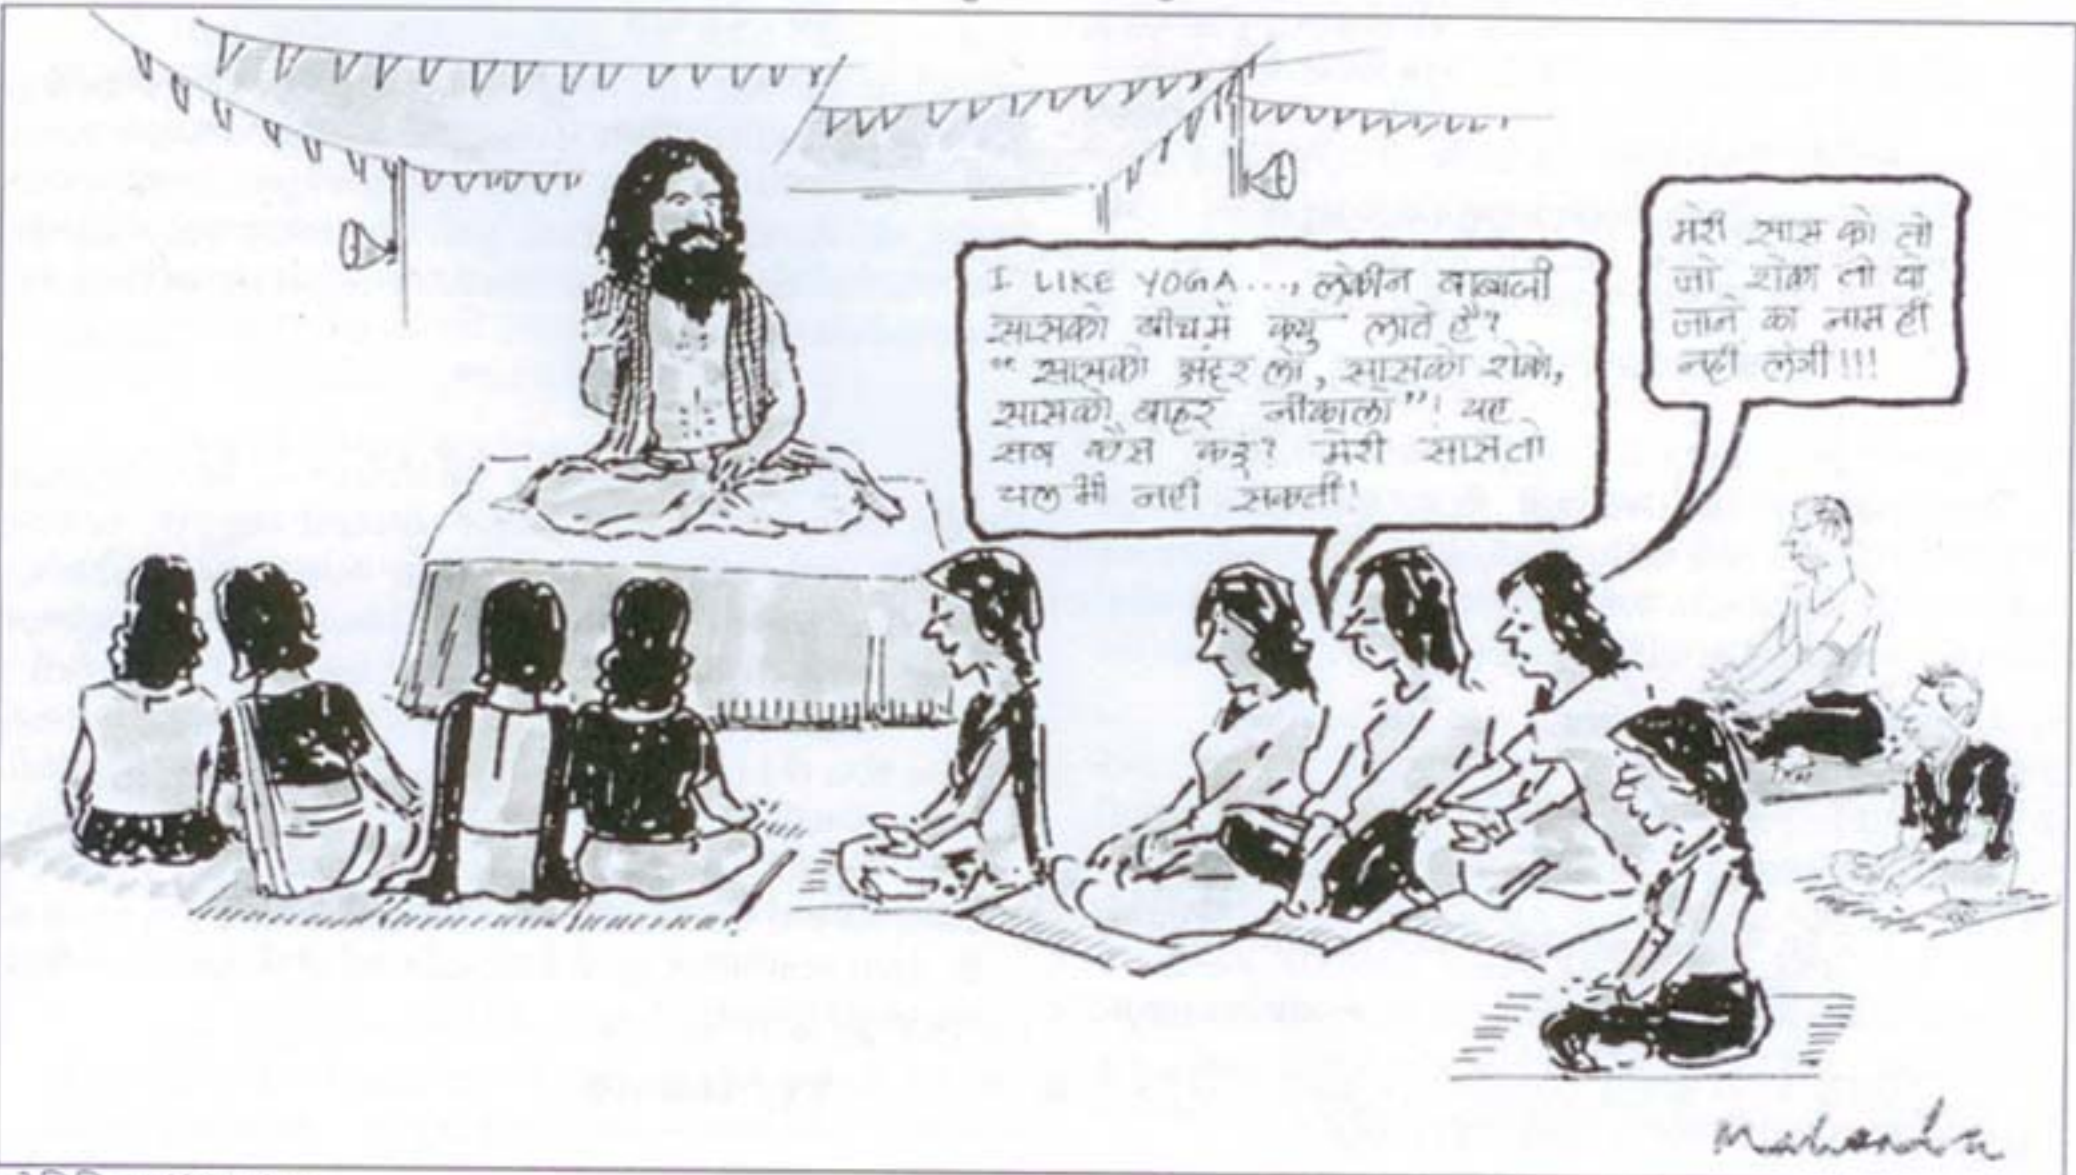 I LIKE YOGA..., लेकीन बाबाजी
सासको बीचमें क्यु लाते है?
"सासको अंदर लो, सासको रोको,
सासको बाहर नीकालो"! यह
सब कैसे करू? मेरी सासतो
चल भी नहीं सकती!
मेरी सास को तो
जो रोका तो वो
जाने का नाम ही
नहीं लेगी!!!
Mahendra